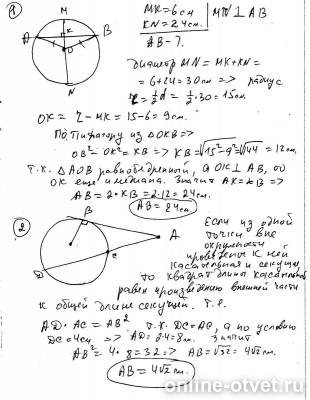 ①
M
A
B
K
O
N
MK = 6 см
KN = 24 см.
MN ⊥ AB
AB - ?
Диаметр MN = MK + KN =
= 6 + 24 = 30 см => радиус
r = ½ d = ½ · 30 = 15 см.
OK = r - MK = 15 - 6 = 9 см.
По Пифагору из △OKB =>
OB² - OK² = KB => KB = √15² - 9² = √144 = 12 см.
т.к. △AOB равнобедренный, а OK ⊥ AB, то
OK еще и медиана. Значит AK = KB =>
AB = 2 · KB = 2 · 12 = 24 см.
AB = 24 см.
②
B
A
C
D
Если из одной
точки вне
окружности
проведены к ней
касательная и секущая,
то квадрат длины касательной
равен произведению внешней части
к общей длине секущей. Т.е.
AD · AC = AB² т.к. DC = AC, а по условию
DC = 4 см => AD = 2·4 = 8 см. Значит
AB² = 4 · 8 = 32 => AB = √32 = 4√2 см.
AB = 4√2 см.
online-otvet.ru